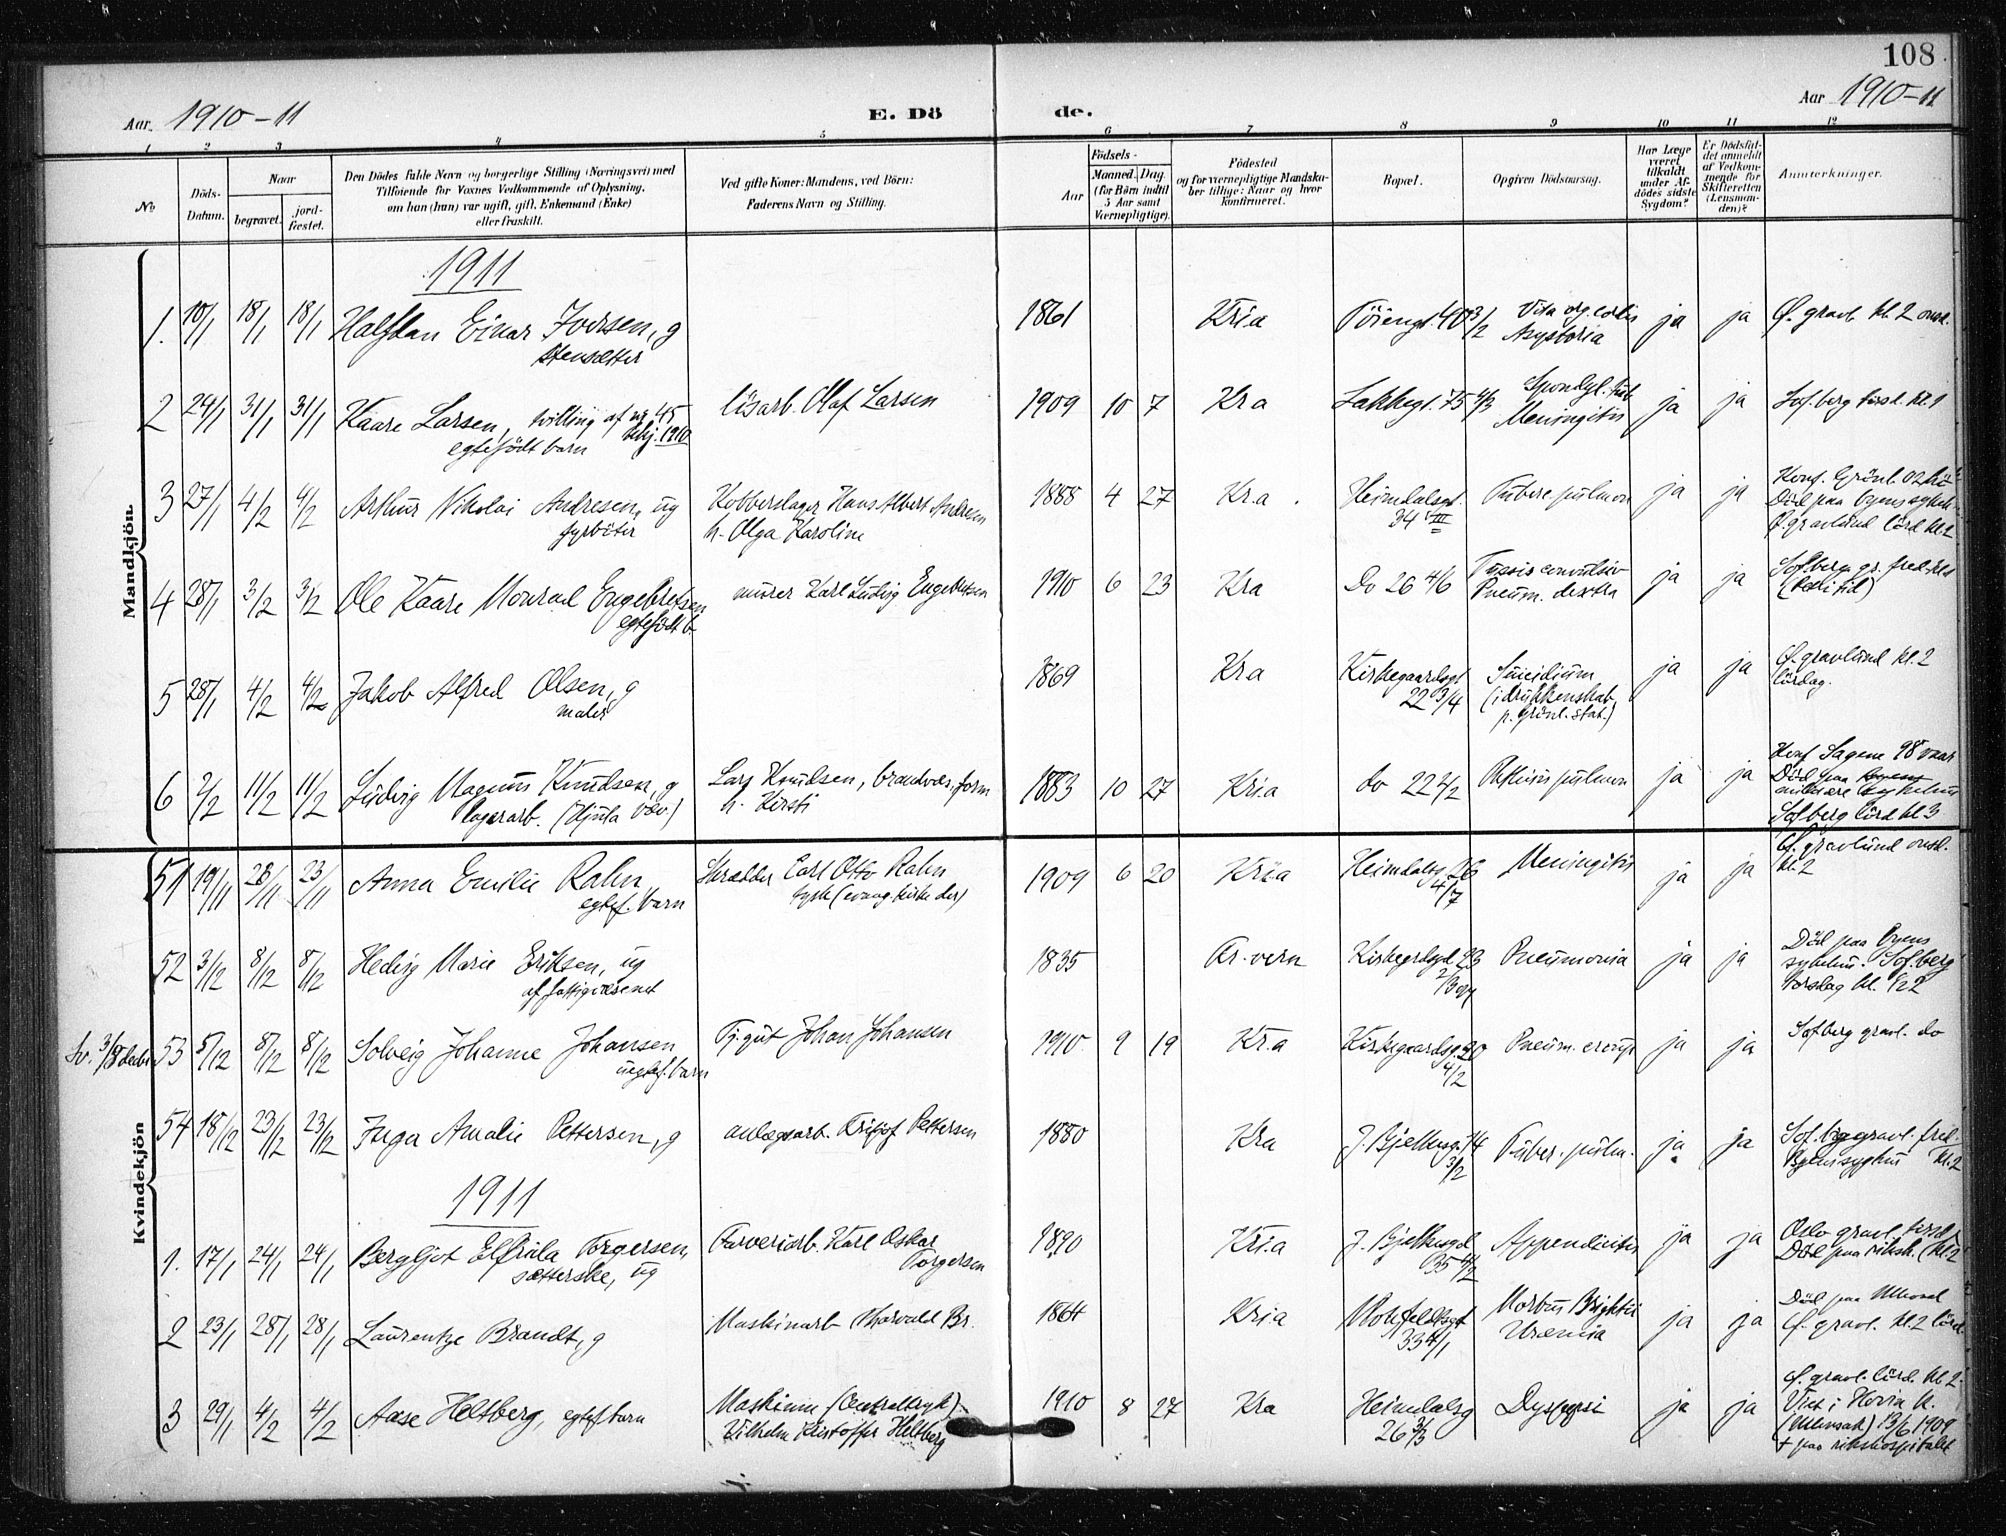 108
Aar 1910-11 E. Dö de. Aar 1910-11
1 2 3 4 5 6 7 8 9 10 11 12
No
Döds-Datum.
Naar
begravet.
jord-fæstet.
Den Dödes fulde Navn og borgerlige Stilling (Næringsvei) med
Tilføiende for Voxnes Vedkommende af Oplysning,
om han (hun) var ugift, gift, Enkemand (Enke)
eller fraskilt.
Ved gifte Koner: Mandens, ved Börn:
Faderens Navn og Stilling.
Födsels-
Aar
Maaned. Dag.
(for Börn indtil
5 Aar samt
Værnepligtige).
Födested
og for værnepligtige Mandska-
ber tillige: Naar og hvor
konfirmeret.
Bopæl.
Opgiven Dödsaarsag.
Har Læge
været
tilkaldt
under Af-
dödes sidste
Sygdom?
Er Dödsfal-
det anmeldt
af Vedkom-
mende for
Skifteretten
(Lensman-
den)?
Anmerkninger.
Mandkjön.
1911
1. 10/1 18/1 18/1 Halfdan Einar Iversen, g 1861 Kria Töiengt. 40 3/2 Asystoria ja ja Ø. gravl. kl. 2 onsd.
stensætter
2 24/1 31/1 31/1 Kaare Larsen, tvilling af no 45 1910 lösarb. Olaf Larsen 1909 10 7 Kra Lakkegt. 75 4/3 Meningitis ja ja Sof.berg tirsd. kl. 1
egtefödt barn
3 27/1 4/2 4/2 Arthur Nikolai Andresen, ug Kobberslager Hans Albert Andresen 1888 4 27 Kr.a. Heimdalsgt. Tuberc. pulmon ja ja Konf. Grönl. 02
fyrböter h. Olga Karoline 34 III Död paa byens sykeh.
Ø. gravlund lörd. kl. 2
4 28/1 3/2 3/2 Ole Kaare Monrad Engebretsen murer Karl Ludvig Engebretsen 1910 6 23 Kra Do 26 4/6 Tussis convulsiv ja ja
egtefödt b. Pneum. dextra
5 28/1 4/2 4/2 Jakob Alfred Olsen, g 1869 Kra Kirkegaardsgt 22 3/4 Suicidium ja ja Ø. gravlund kl. 2
maler (i drukkenskab lördag.
p. Grönl. stat.)
6 2/2 11/2 11/2 Ludvig Magnus Knudsen, g Lars Knudsen, brandvæs. form 1883 10 27 Kri.a do 22 2/2 Phthisis pulmon ja ja Konf Sagene 98 vaar
lagerarb. (Hjula Væv.) h. Kirsti Död paa byens
militære sykehus
Sofberg lörd kl 3
Kvindekjön
51 19/11 23/11 23/11 Anna Emilie Rahn Skrædder Carl Otto Rahn 1909 6 20 Kria Heimdalsg 26 4/7 Meningitis ja ja Ø. gravlund onsd.
egtef. barn tysk (evang. kirke der) kl. 2
52 3/12 8/12 8/12 Hedvig Marie Eriksen, ug 1835 Kirkegrdsgd 23 Pneumonia ja ja Död paa Byens
af fattigvæsenet sykehu. Sof.berg
torsdag kl. 1/2 2
53 5/12 8/12 8/12 Solveig Johanne Johansen Tj.gut Johan Johansen 1910 9 19 Kr.a Kirkegaardsg. 20 4/2 Pneum. croup ja ja Sofberg gravl. do
uegtef. barn
54 18/12 23/12 23/12 Inga Amalie Pettersen, g anlægsarb. Fritjof Pettersen 1880 Kra J. Bjelkesg. 14 3/2 Tuber. pulm. ja ja Sof.berg gravl. fred.
Byens sygehus kl. 2
1911
1. 17/1 24/1 24/1 Bergljot Elfrida Torgersen, Farveriarb. Karl Oskar 1890 Kri.a J. Bjelkesgd 35 4/2 Appendicitis ja ja Oslo gravl. tirsd
sætterske, ug Torgersen Död paa riksh. (kl. 2
2 23/1 28/1 28/1 Laurentze Brandt, g Maskinarb Thorvald Br. 1864 Kria Motzfeldtsgt 33 4/1 Morbus Brightii ja ja Död paa Ullevaal
Uræmia Ø. gravl. kl. 2 lörd.
3 29/1 4/2 4/2 Aase Heltberg, egtef barn Maskinm (Centraltryk) 1910 8 27 Kra Heimdalsg 26 3/3 Dyspepsi ja ja Ø. gravl. lörd. kl 2.
Vilhelm Kristoffer Heltberg Viet i Hovin k.
(Ullensak) 13/6 1909
+ paa rikshospitalet